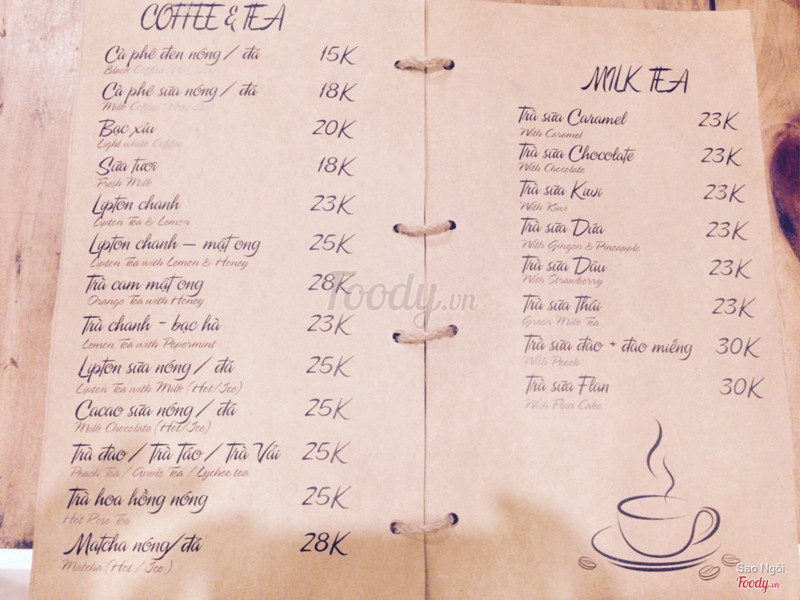 COFFEE & TEA
Cà phê đen nóng / đá 15K
Black Coffee (Hot/Ice)
Cà phê sữa nóng / đá 18K
Milk Coffee (Hot/Ice)
Bạc xỉu 20K
Light white Coffee
Sữa tươi 18K
Fresh Milk
Lipton chanh 23K
Lipton Tea & Lemon
Lipton chanh – mật ong 25K
Lipton Tea with Lemon & Honey
Trà cam mật ong 28K
Orange Tea with Honey
Trà chanh - bạc hà 23K
Lemon Tea with Pepermint
Lipton sữa nóng / đá 25K
Lipton Tea with Milk (Hot/Ice)
Cacao sữa nóng / đá 25K
Milk Chocolate (Hot/Ice)
Trà đào / Trà Táo / Trà Vải 25K
Peach Tea / Apple Tea / Lychee tea
Trà hoa hồng nóng 25K
Hot Rose Tea
Matcha nóng/đá 28K
Matcha (Hot / Ice)
MILK TEA
Trà sữa Caramel 23K
With Caramel
Trà sữa Chocolate 23K
With Chocolate
Trà sữa Kiwi 23K
With Kiwi
Trà sữa Dứa 23K
With Ginger & Pineapple
Trà sữa Dâu 23K
With Strawberry
Trà sữa Thái 23K
Green Milk Tea
Trà sữa đào + đào miếng 30K
With Peach
Trà sữa Flan 30K
With Flan Cake
Foody.vn
Sao Ngôi
Foody.vn